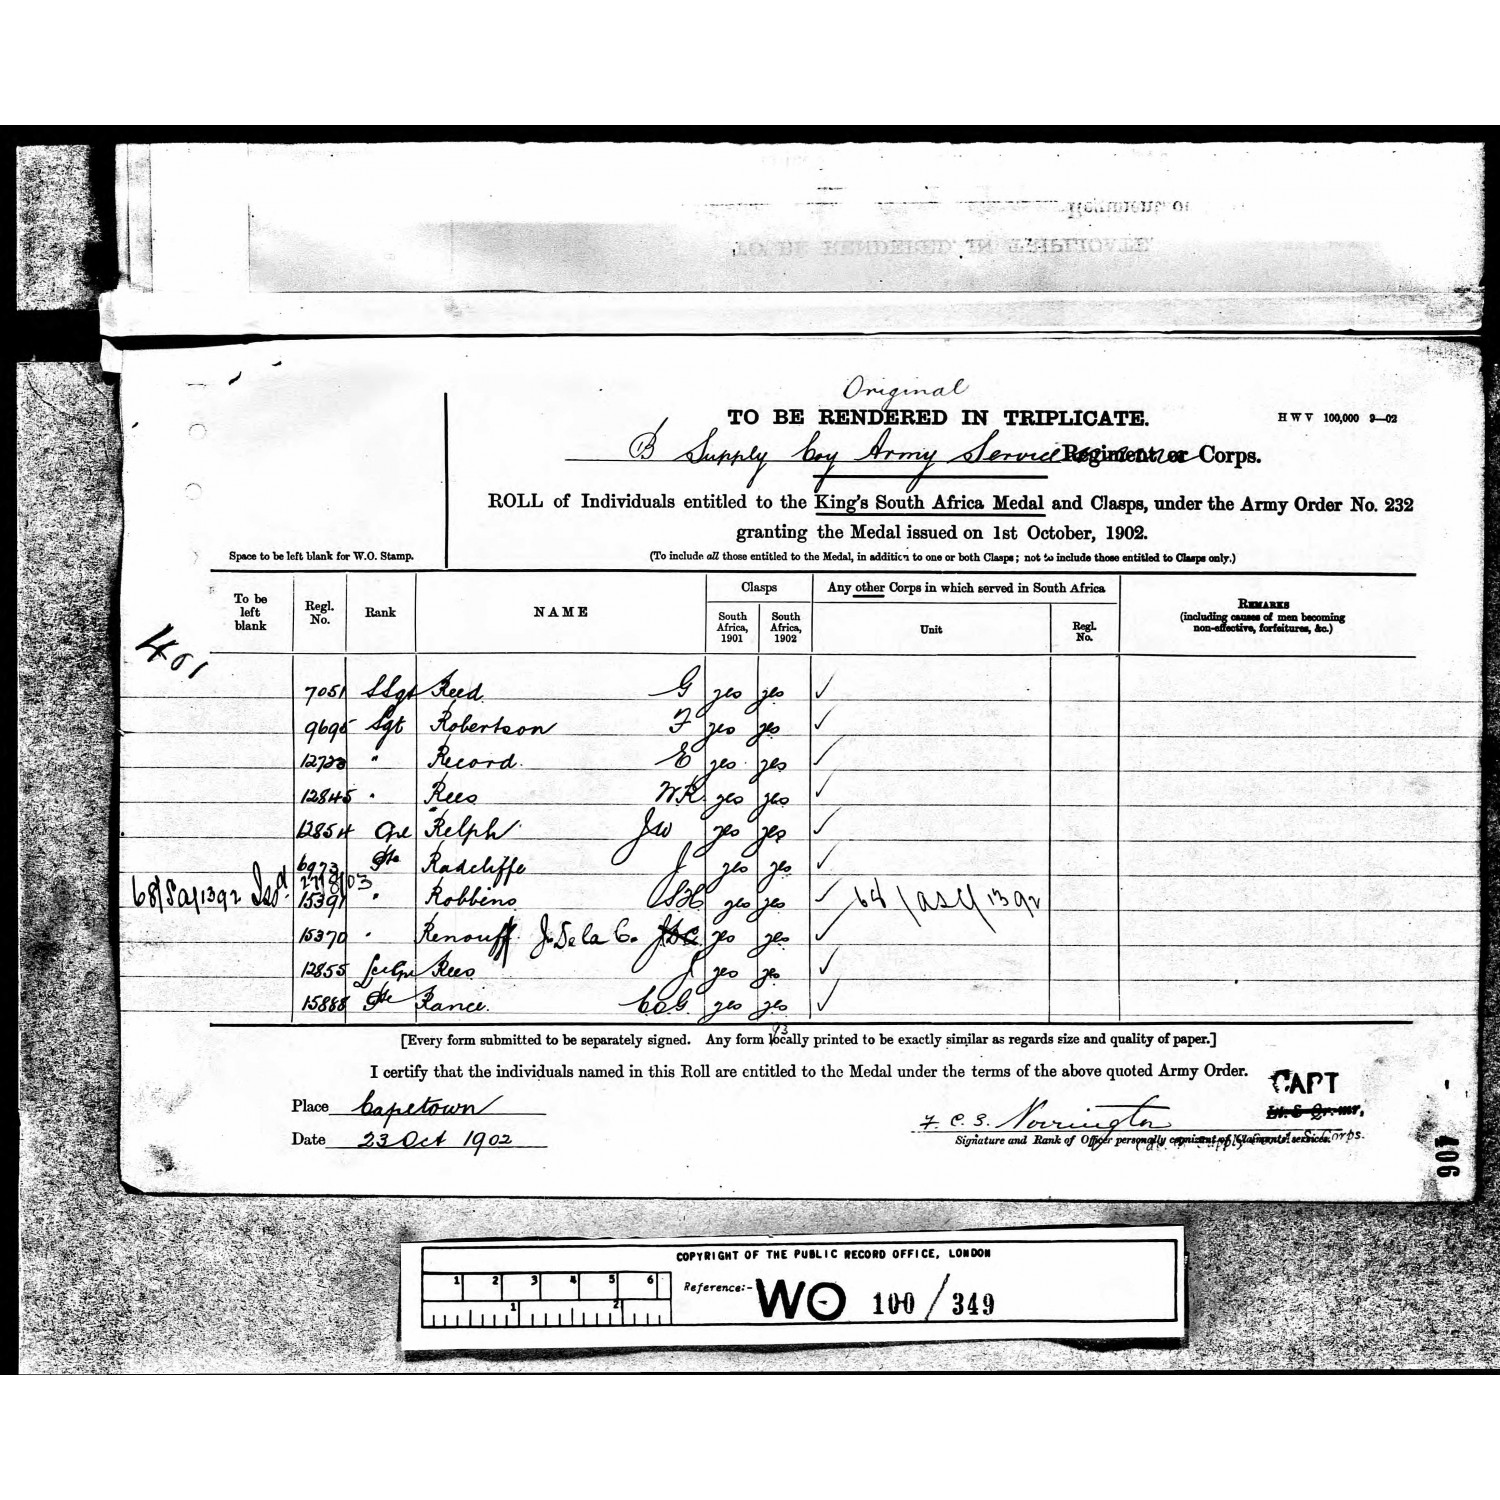 Regiment or
TO BE RENDERED IN TRIPLICATE
Original
TO BE RENDERED IN TRIPLICATE.
H W V 100,000 9—02
B Supply Coy Army Service Regiment or Corps.
ROLL of Individuals entitled to the King's South Africa Medal and Clasps, under the Army Order No. 232
granting the Medal issued on 1st October, 1902.
Space to be left blank for W.O. Stamp.
(To include all those entitled to the Medal, in addition to one or both Clasps; not to include those entitled to Clasps only.)
To be left blank Regl. No. Rank NAME Clasps South Africa, 1901 South Africa, 1902 Any other Corps in which served in South Africa Unit Regl. No. REMARKS (including causes of men becoming non-effective, forfeitures, &c.)
401
7051 SSgt Reed G yes yes ✓
9695 Sgt Robertson F yes yes ✓
" Record. E yes yes ✓
12845 " Rees W.R. yes yes ✓
12854 Cpl Relph JW yes yes ✓
6973 Pte Radcliffe J yes yes ✓
27/8/03
68/Sa/1392 Issd. 15391 " Robbins yes yes ✓ 68/ASC/1392
15370 " Renouff J. De la C. yes yes ✓
12855 Rees J yes yes ✓
15888 Pte Rance. C.O.G. yes yes ✓
93
[Every form submitted to be separately signed. Any form locally printed to be exactly similar as regards size and quality of paper.]
I certify that the individuals named in this Roll are entitled to the Medal under the terms of the above quoted Army Order.
CAPT
Place Capetown
F. C. S. Norrington
Date 23 Oct 1902
Signature and Rank of Officer personally cognizant of Claimants' services.
406
COPYRIGHT OF THE PUBLIC RECORD OFFICE, LONDON
1 2 3 4 5 6
Reference:- WO 100/349
1 2